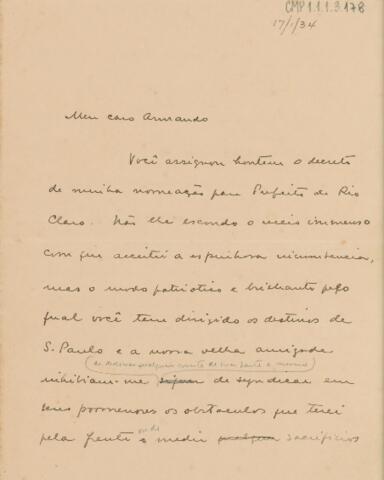 CMP 1.1.1.3.178
17/1/34
Meu caro Armando
Você assignou hontem o decreto
de minha nomeação para Prefeito de Rio
Claro. Não lhe escondo o receio immenso
com que acceitei a espinhosa incumbencia,
mas o modo patriotico e brilhante pelo
qual você tem dirigido os destinos de
S. Paulo e a nossa velha amizade
de recusar qualquer convite de sua parte e mesmo
inhibiam-me de syndicar em
seus pormenores os obstaculos que terei
pela frente e medir sacrificios